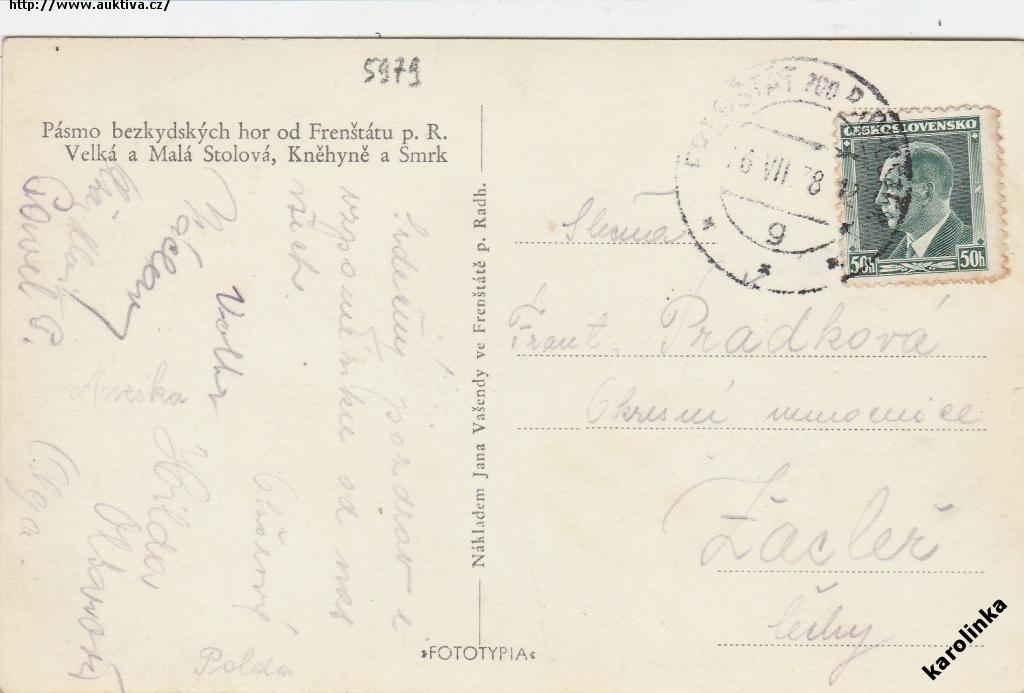 http://www.auktiva.cz/
5979
Pásmo bezkydských hor od Frenštátu p. R.
Velká a Malá Stolová, Kněhyně a Smrk
Srdečný pozdrav i
vzpomínku od nás
všech.
Pavel P.
Václav
Anežka
Hilda
Olga
Polda
Nákladem Jana Vašendy ve Frenštátě p. Radh.
»FOTOTYPIA«
FRENŠTÁT POD RADH
6 VII 38
g
ČESKOSLOVENSKO
50h 50h
Slečna
Frant. Pradková
Okresní nemocnice
Žacléř
Čechy
karolinka